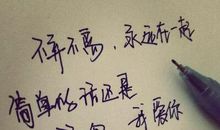 不弃不离,永远在一起
简单的话还是
我爱你